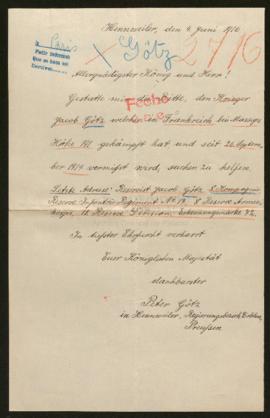 Hennweiler, den 4. Juni 1916
Paris
Götz
2716
Allergnädigster König und Herr!
Gestatte mir die Bitte, den Krieger
Fecho
Jacob Götz welcher in Frankreich bei Massiges
Höhe 191 gekämpft hat und seit 26. September
1914 vermißt wird, suchen zu helfen.
Letzte Adresse: Reservist Jacob Götz 8. Kompagnie
Reserve Infanterie Regiment No
Reserve Division, Erkennungsmarke 72.
In tiefster Ehrfurcht verharrt
Euer Königlichen Majestät
dankbarster
Peter Götz
in Hennweiler, Regierungsbezirk Coblenz,
Preußen